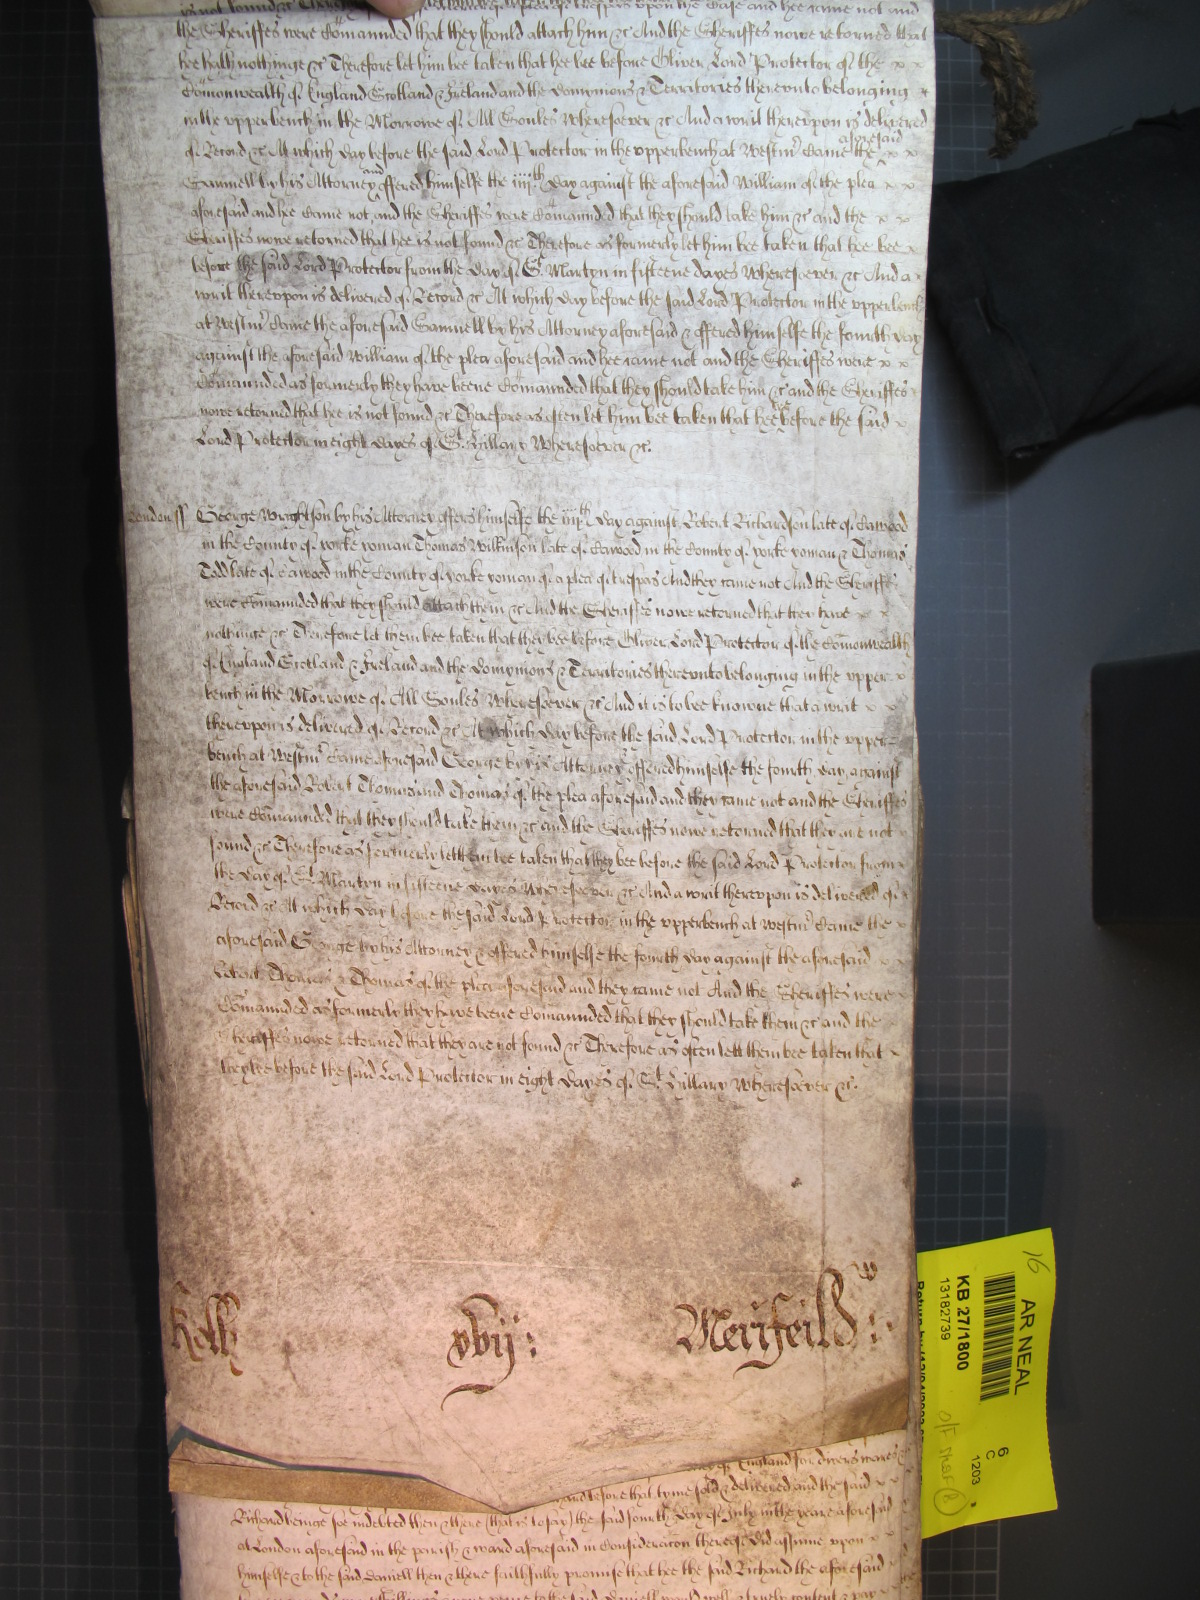 is not found &c Therefore
the Sheriffes were Comaunded that they should attach him &c And the Sheriffes nowe retorned that
hee hath nothinge &c Therefore let him bee taken that hee bee before Oliver Lord Protector of the x x
Comonwealth of England Scotland & Ireland and the Domynions & Territories therevnto belonging x
in the vpperbench in the Morrowe of All Soules Wheresoever &c And a writ therevpon is delivered
of Record &c At which day before the said Lord Protector in the vpperbench at Westmr Came the aforesaid x x
Samuell by his Attorney and offered himselfe the iiijth day against the aforesaid William of the plea x x
aforesaid and hee Came not and the Sheriffes were Comaunded that they should take him &c and the x x
Sheriffes nowe retorned that hee is not found &c Therefore as formerly let him bee taken that hee bee
before the said Lord Protector from the day of St Martyn in fifteene dayes Wheresoever &c And a
writ therevpon is delivered of Record &c At which day before the said Lord Protector in the vpperbench
at Westmr Came the aforesaid Samuell by his Attorney aforesaid & offered himselfe the fourth day
against the aforesaid William of the plea aforesaid and hee came not and the Sheriffes were x x
Comaunded as formerly they have beene Comaunded that they should take him &c and the Sheriffes
nowe retorned that hee is not found &c Therefore as often let him bee taken that hee bee before the said x
Lord Protector in eight dayes of St Hillary Wheresoever &c.
London ss George Wrightson by his Attorney offers himselfe the iiijth day against Robert Richardson late of Cawood
in the County of yorke yoman Thomas Wilkinson late of Cawood in the County of yorke yoman & Thomas
Todd late of Cawood in the County of yorke yoman of a plea of trespas And they came not And the Sheriffes
were Comaunded that they should attach them &c And the Sheriffes nowe retorned that they have x x
nothinge &c Therefore let them bee taken that they bee before Oliver Lord Protector of the Comonwealth
of England Scotland & Ireland and the Domynions & Territories therevnto belonging in the vpper x
bench in the Morrowe of All Soules Wheresoever &c And it is to bee knowne that a writ x x
therevpon is delivered of Record &c At which day before the said Lord Protector in the vpper
bench at Westmr Came aforesaid George by his Attorney offered himselfe the fourth day against
the aforesaid Robert Thomas and Thomas of the plea aforesaid and they came not and the Sheriffes
were Comaunded that they should take them &c and the Sheriffes nowe retorned that they are not
found &c Therefore as formerly lett them bee taken that they bee before the said Lord Protector from
the day of St Martyn in fifteene dayes Wheresoever &c And a writ therevpon is delivered of
Record &c At which day before the said Lord Protector in the vpperbench at Westmr Came the
aforesaid George by his Attorney & offered himselfe the fourth day against the aforesaid
Robert Thomas & Thomas of the plea aforesaid and they came not And the Sheriffes were
Comaunded as formerly they have beene Comaunded that they should take them &c and the
Sheriffes nowe retorned that they are not found &c Therefore as often lett them bee taken that
they bee before the said Lord Protector in eight dayes of St Hillary Wheresoever &c.
xvij: Merifeild
of England for divers wares
before that tyme sold & delivered and the said x x
Richard beinge soe indebted then & there (that is to say) the said fourth day of July in the yeare aforesaid
at London aforesaid in the parish & ward aforesaid in Consideracon thereof did assume vpon x x
himselfe & to the said Daniell then & there faithfully promise that hee the said Richard the aforesaid
16
AR NEAL
KB 27/1800
13182739
6
C
1203